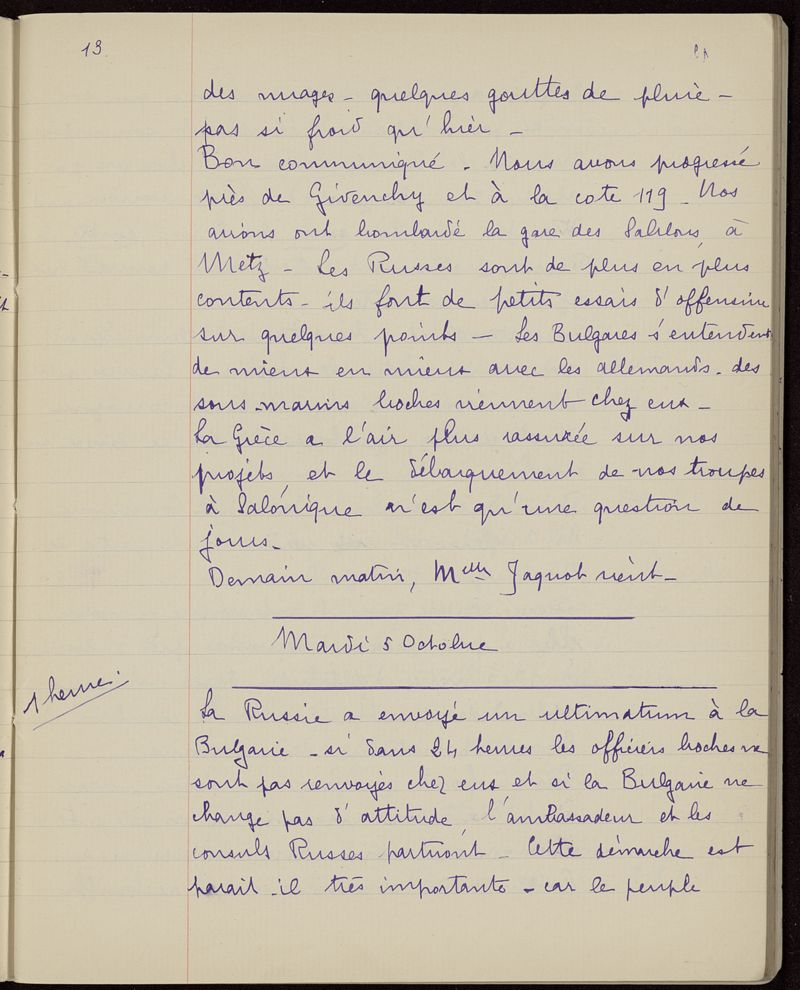 13
des nuages - quelques gouttes de pluie -
pas si froid qu'hier -
Bon communiqué - Nous avons progressé
près de Givenchy et à la cote 119 - Nos
avions ont bombardé la gare des Sablons à
Metz - Les Russes sont de plus en plus
contents - ils font de petits essais d'offensive
sur quelques points - Les Bulgares s'entendent
de mieux en mieux avec les allemands - des
sous-marins boches viennent chez eux -
La Grèce a l'air plus rassurée sur nos
projets, et le débarquement de nos troupes
à Salonique n'est qu'une question de
jours -
Demain matin, Melle Jaquot vient -
Mardi 5 Octobre
1 heure.
La Russie a envoyé un ultimatum à la
Bulgarie - si dans 24 heures les officiers boches ne
sont pas renvoyés chez eux et si la Bulgarie ne
change pas d'attitude, l'ambassadeur et les
consuls Russes partiront - Cette démarche est
parait-il très importante - car le peuple